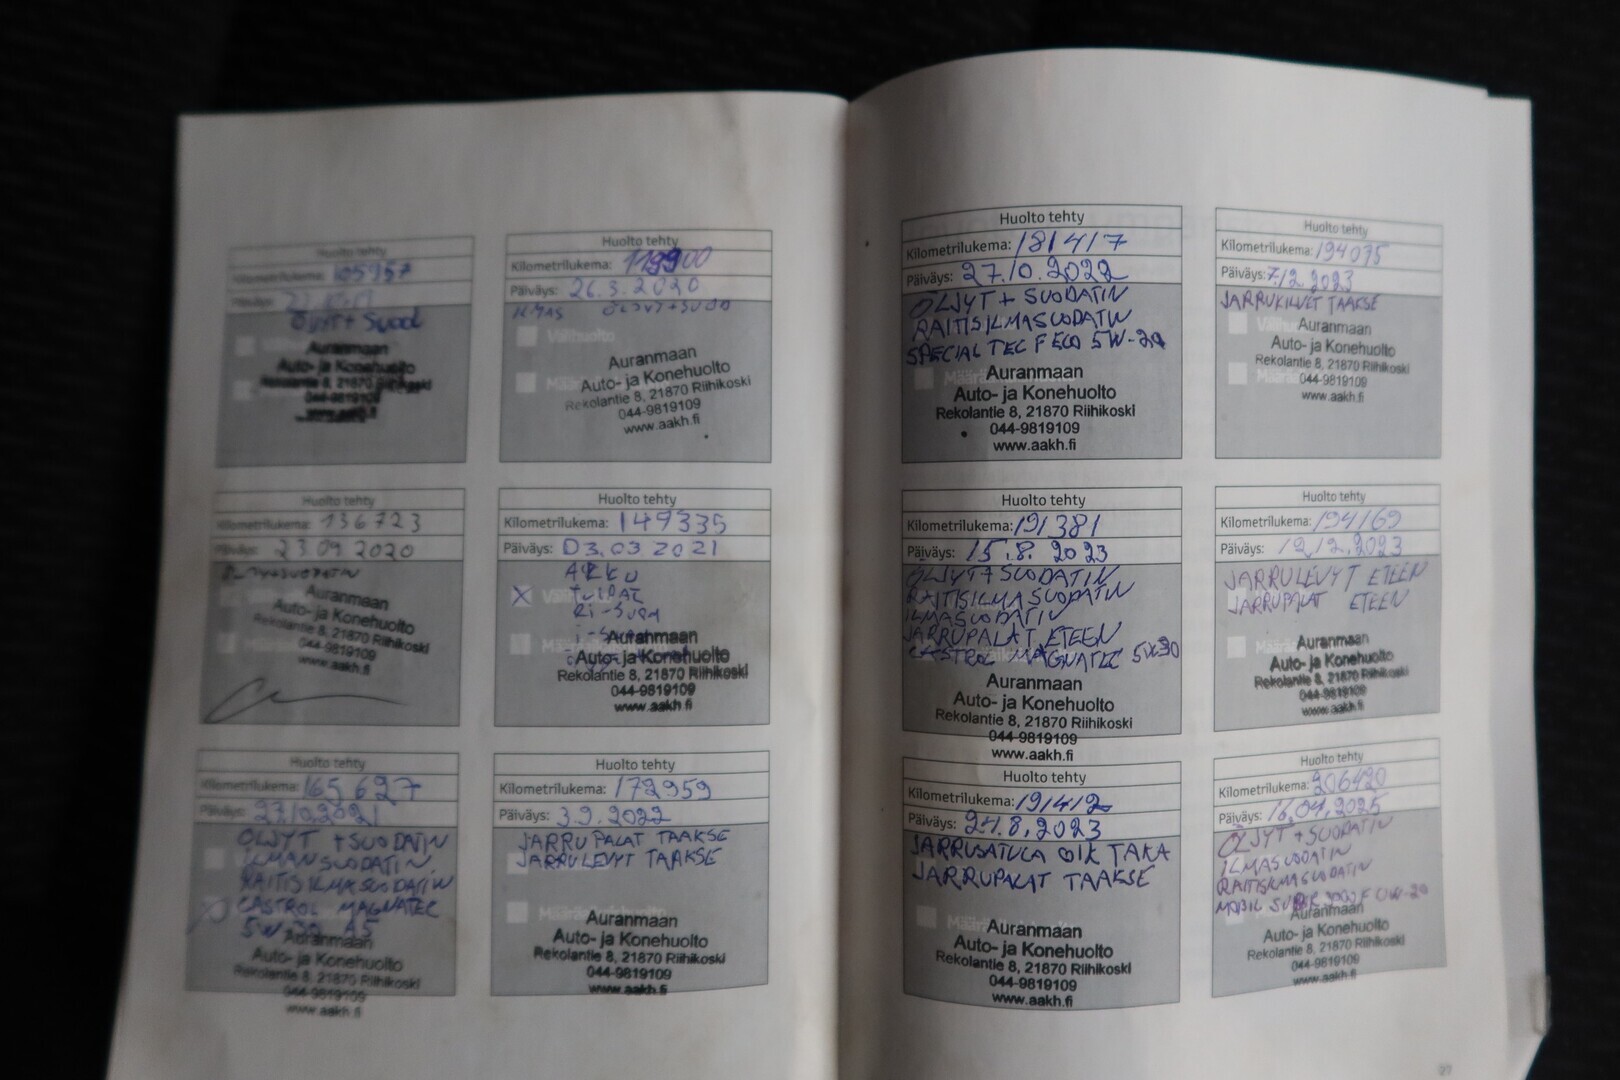 Huolto tehty
Kilometrilukema: 105957
Päiväys:
ÖLJYT + SUOD
Auranmaan
Auto- ja Konehuolto
Rekolantie 8, 21870 Riihikoski
044-9819109
www.aakh.fi
Huolto tehty
Kilometrilukema: 119900
Päiväys: 26.3.2020
ILMAS ÖLJYT+SUOD
Välihuolto
Auranmaan
Auto- ja Konehuolto
Rekolantie 8, 21870 Riihikoski
044-9819109
www.aakh.fi
Huolto tehty
Kilometrilukema: 136723
Päiväys: 23.09.2020
ÖLJYT+SUODATIN
Auranmaan
Auto- ja Konehuolto
Rekolantie 8, 21870 Riihikoski
044-9819109
www.aakh.fi
Huolto tehty
Kilometrilukema: 149335
Päiväys: 03.03 2021
AKKU
TULPAT
Auranmaan
Auto- ja Konehuolto
Rekolantie 8, 21870 Riihikoski
044-9819109
www.aakh.fi
Huolto tehty
Kilometrilukema: 165 627
Päiväys: 27.10.2021
ÖLJYT + SUODATIN
ILMANSUODATIN
RAITISILMASUODATIN
CASTROL MAGNATEC
5W-30 A5
Auranmaan
Auto- ja Konehuolto
Rekolantie 8, 21870 Riihikoski
044-9819109
www.aakh.fi
Huolto tehty
Kilometrilukema: 172959
Päiväys: 3.9.2022
JARRUPALAT TAAKSE
JARRULEVYT TAAKSE
Auranmaan
Auto- ja Konehuolto
Rekolantie 8, 21870 Riihikoski
044-9819109
www.aakh.fi
Huolto tehty
Kilometrilukema: 181417
Päiväys: 27.10.2022
ÖLJYT + SUODATIN
RAITISILMASUODATIN
SPECIAL TEC F ECO 5W-20
Auranmaan
Auto- ja Konehuolto
Rekolantie 8, 21870 Riihikoski
044-9819109
www.aakh.fi
Huolto tehty
Kilometrilukema: 194075
Päiväys: 7/12.2023
JARRUKILVET TAAKSE
Auranmaan
Auto- ja Konehuolto
Rekolantie 8, 21870 Riihikoski
044-9819109
www.aakh.fi
Huolto tehty
Kilometrilukema: 191381
Päiväys: 15.8.2023
ÖLJYT + SUODATIN
RAITISILMASUODATIN
ILMASUODATIN
JARRUPALAT ETEEN
CASTROL MAGNATEC 5W30
Auranmaan
Auto- ja Konehuolto
Rekolantie 8, 21870 Riihikoski
044-9819109
www.aakh.fi
Huolto tehty
Kilometrilukema: 194169
Päiväys: 12/12.2023
JARRULEVYT ETEEN
JARRUPALAT ETEEN
Auranmaan
Auto- ja Konehuolto
Rekolantie 8, 21870 Riihikoski
044-9819109
www.aakh.fi
Huolto tehty
Kilometrilukema: 191412
Päiväys: 24.8.2023
JARRUSATULA OIK TAKA
JARRUPALAT TAAKSE
Auranmaan
Auto- ja Konehuolto
Rekolantie 8, 21870 Riihikoski
044-9819109
www.aakh.fi
Huolto tehty
Kilometrilukema: 206420
Päiväys: 16.04.2025
ÖLJYT + SUODATIN
ILMASUODATIN
RAITISILMASUODATIN
MOBIL SUPER 3000 F 0W-20
Auranmaan
Auto- ja Konehuolto
Rekolantie 8, 21870 Riihikoski
044-9819109
www.aakh.fi
27